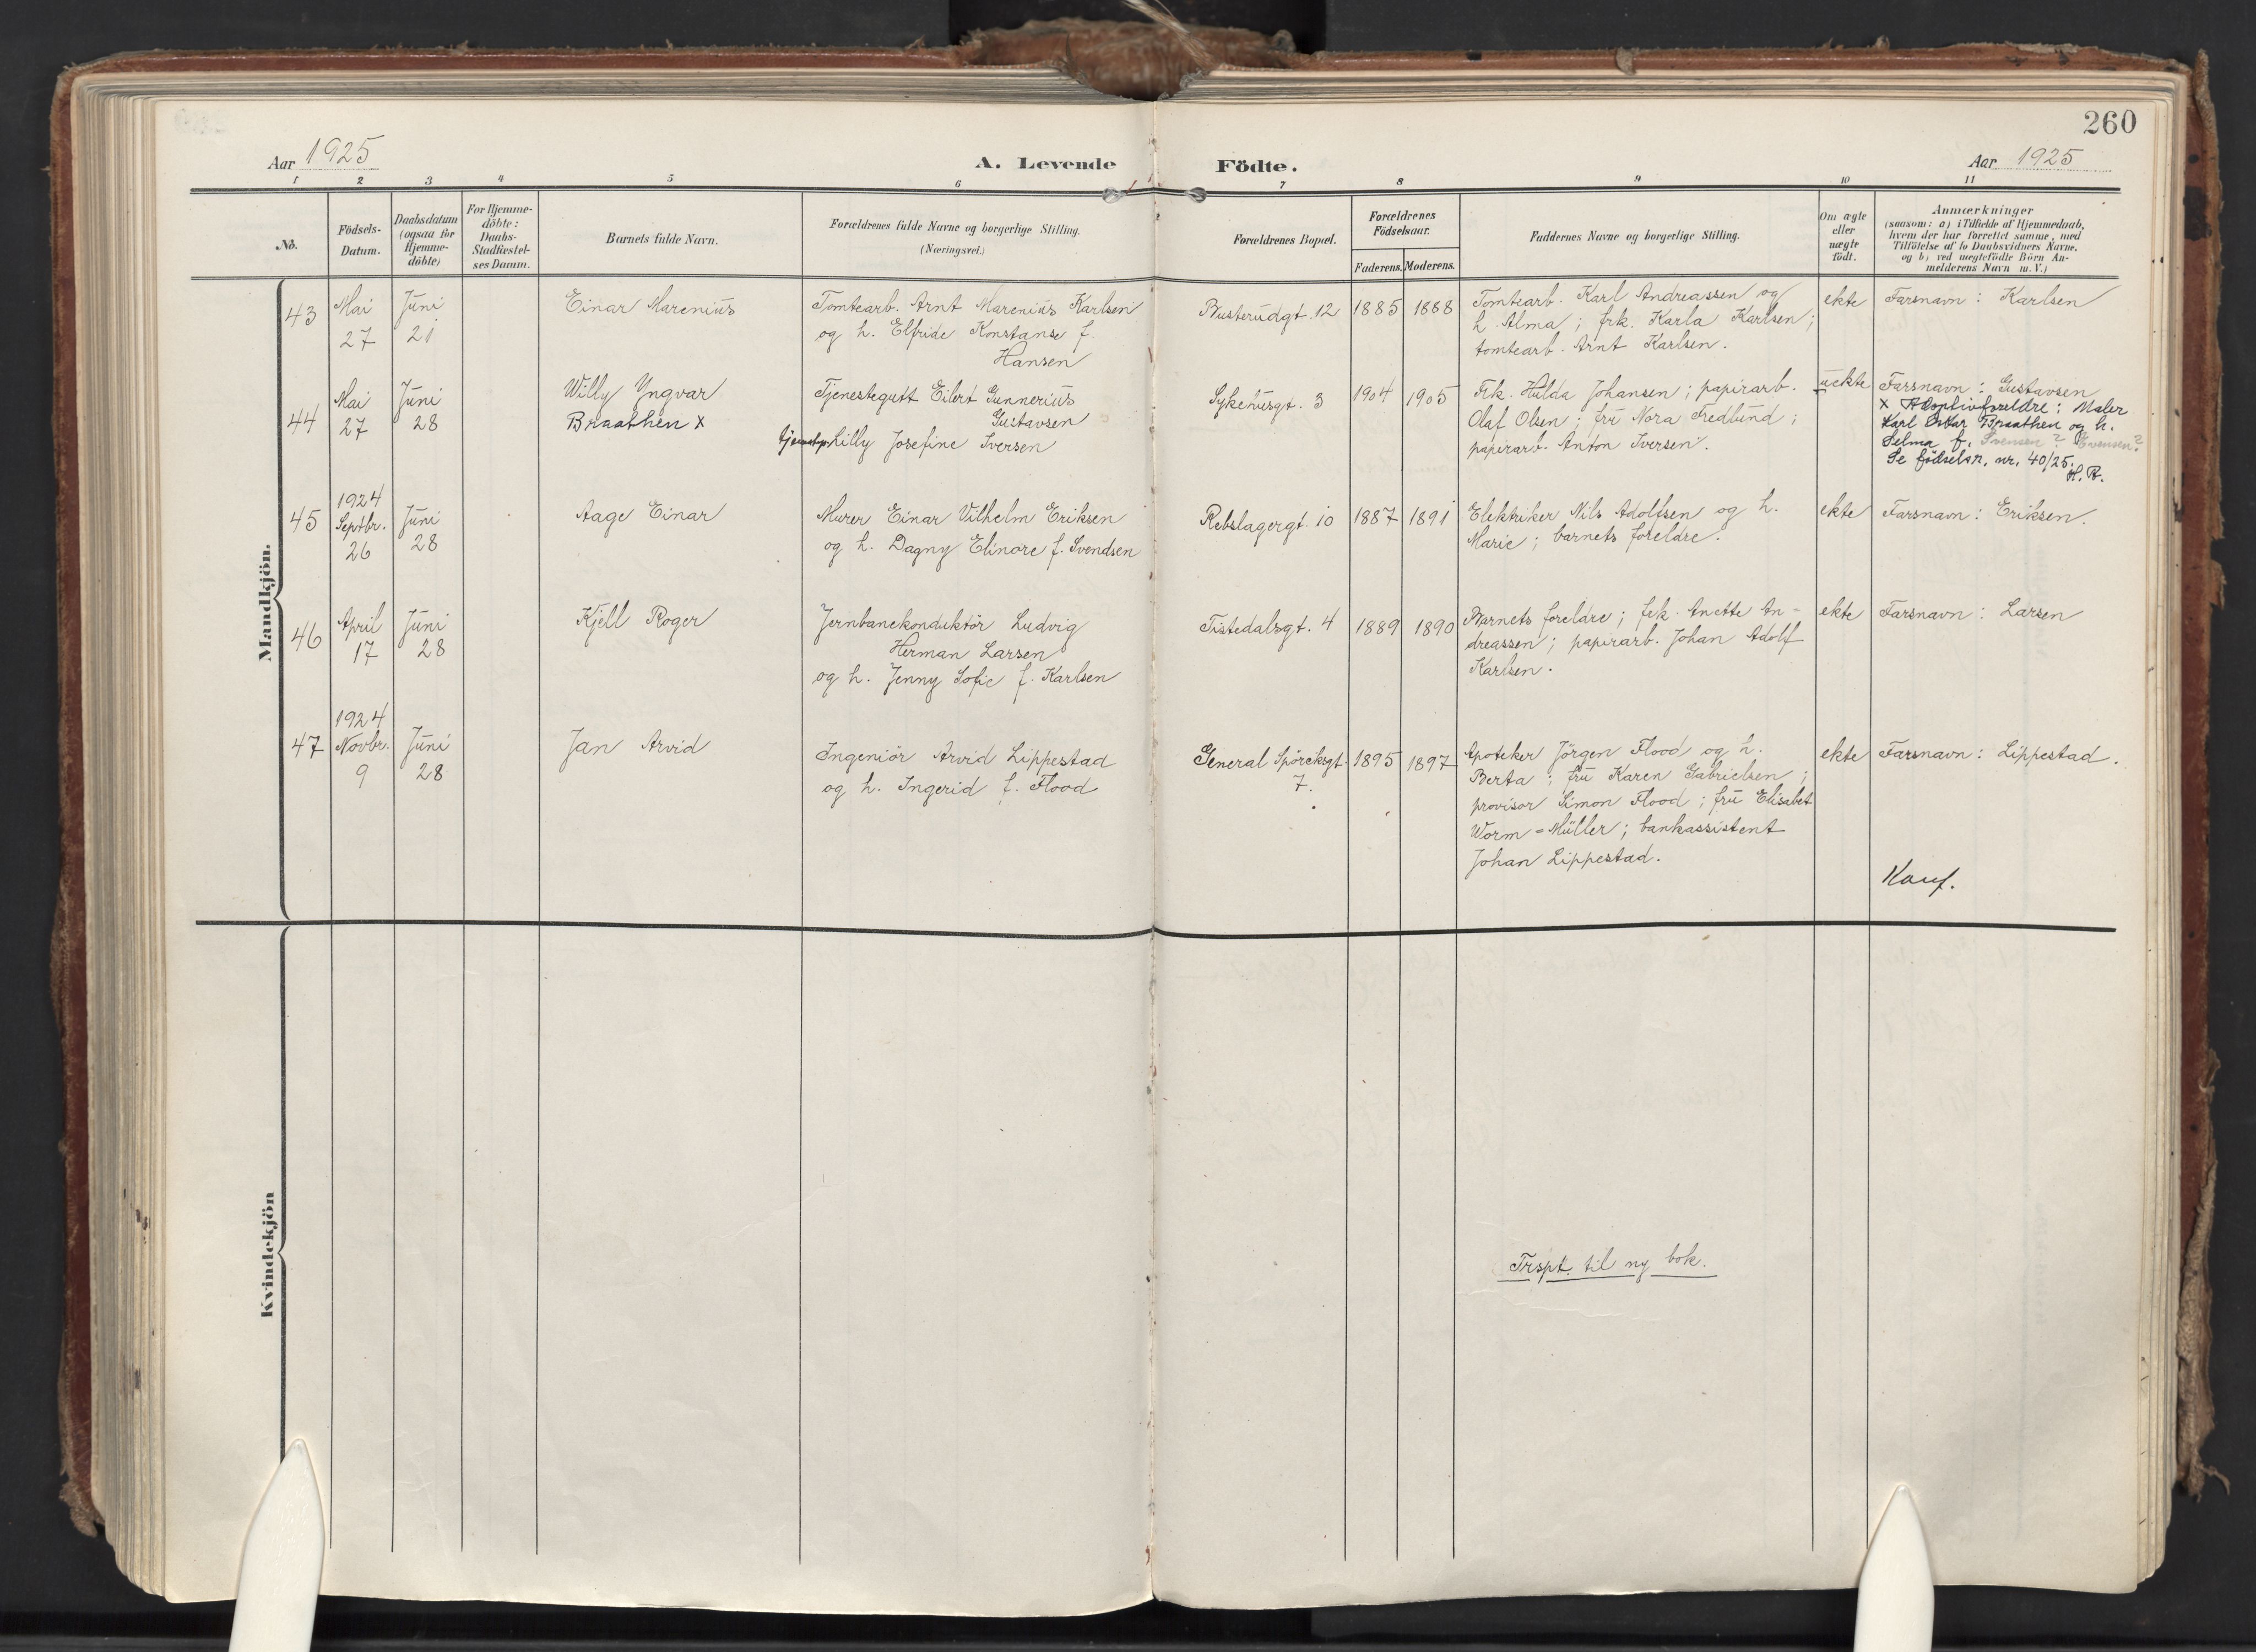 260
Aar 1925
A. Levende Födte.
Aar 1925
1 2 3 4 5 6 7 8 9 10 11
No.
Födsels-
Datum.
Daabsdatum
(ogsaa for
Hjemme-
döbte)
For Hjemme-
döbte:
Daabs-
Stadfæstel-
ses Datum.
Barnets fulde Navn.
Forældrenes fulde Navne og borgerlige Stilling.
(Næringsvei.)
Forældrenes Bopæl.
Forældrenes
Födselsaar.
Faderens. Moderens.
Faddernes Navne og borgerlige Stilling.
Om ægte
eller
uægte
födt.
Anmærkninger
(saasom: a) i Tilfælde af Hjemmedaab,
hvem der har forrettet samme, med
Tilföielse af to Daabsvidners Navne,
og b) ved uægtefödte Börn An-
melderens Navn m. V.)
Mandkjön.
43
Mai
27
Juni
21
Einar Marenius
Tomtearb. Arnt Marenius Karlsen
og h. Elfride Konstanse f.
Hansen
Busterudgt. 12
1885
1888
Tomtearb. Karl Andreassen og
h. Alma; frk. Karla Karlsen;
tomtearb. Arnt Karlsen.
ekte
Farsnavn: Karlsen
44
Mai
27
Juni
28
Willy Yngvar
Braathen x
Tjenestegutt Eilert Gunnerius
Gustavsen
Lilly Josefine Iversen
Sykehusgt. 3
1904
1905
Frk. Hulda Johansen; papirarb.
Olaf Olsen; fru Nora Fredlund;
papirarb. Anton Iversen.
uekte
Farsnavn: Gustavsen
x Adoptivforeldre: Maler
Karl Oskar Braathen og h.
Selma f. Svensen? Evensen?
Se födselsn. nr. 40/25.
H. R.
45
1924
Septbr.
26
Juni
28
Aage Einar
Murer Einar Vilhelm Eriksen
og h. Dagny Elinore f. Svendsen
Rebslagergt. 10
1887
1891
Elektriker Nils Adolfsen og h.
Marie; barnets foreldre.
ekte
Farsnavn: Eriksen.
46
April
17
Juni
28
Kjell Roger
Jernbanekonduktör Ludvig
Herman Larsen
og h. Jenny Sofie f. Karlsen
Tistedalsgt. 4
1889
1890
Barnets foreldre; frk. Anette An-
dreassen; papirarb. Johan Adolf
Karlsen.
ekte
Farsnavn: Larsen
47
1924
Novbr.
9
Juni
28
Jan Arvid
Ingeniör Arvid Lippestad
og h. Ingerid f. Flood
General Spörcksgt.
7.
1895
1897
Apoteker Jörgen Flood og h.
Berta; fru Karen Gabrielsen;
provisor Simon Flood; fru Elisabet
Worm-Müller; bankassistent
Johan Lippestad.
ekte
Farsnavn: Lippestad.
Konf.
Kvindekjön
Trspt. til ny bok.